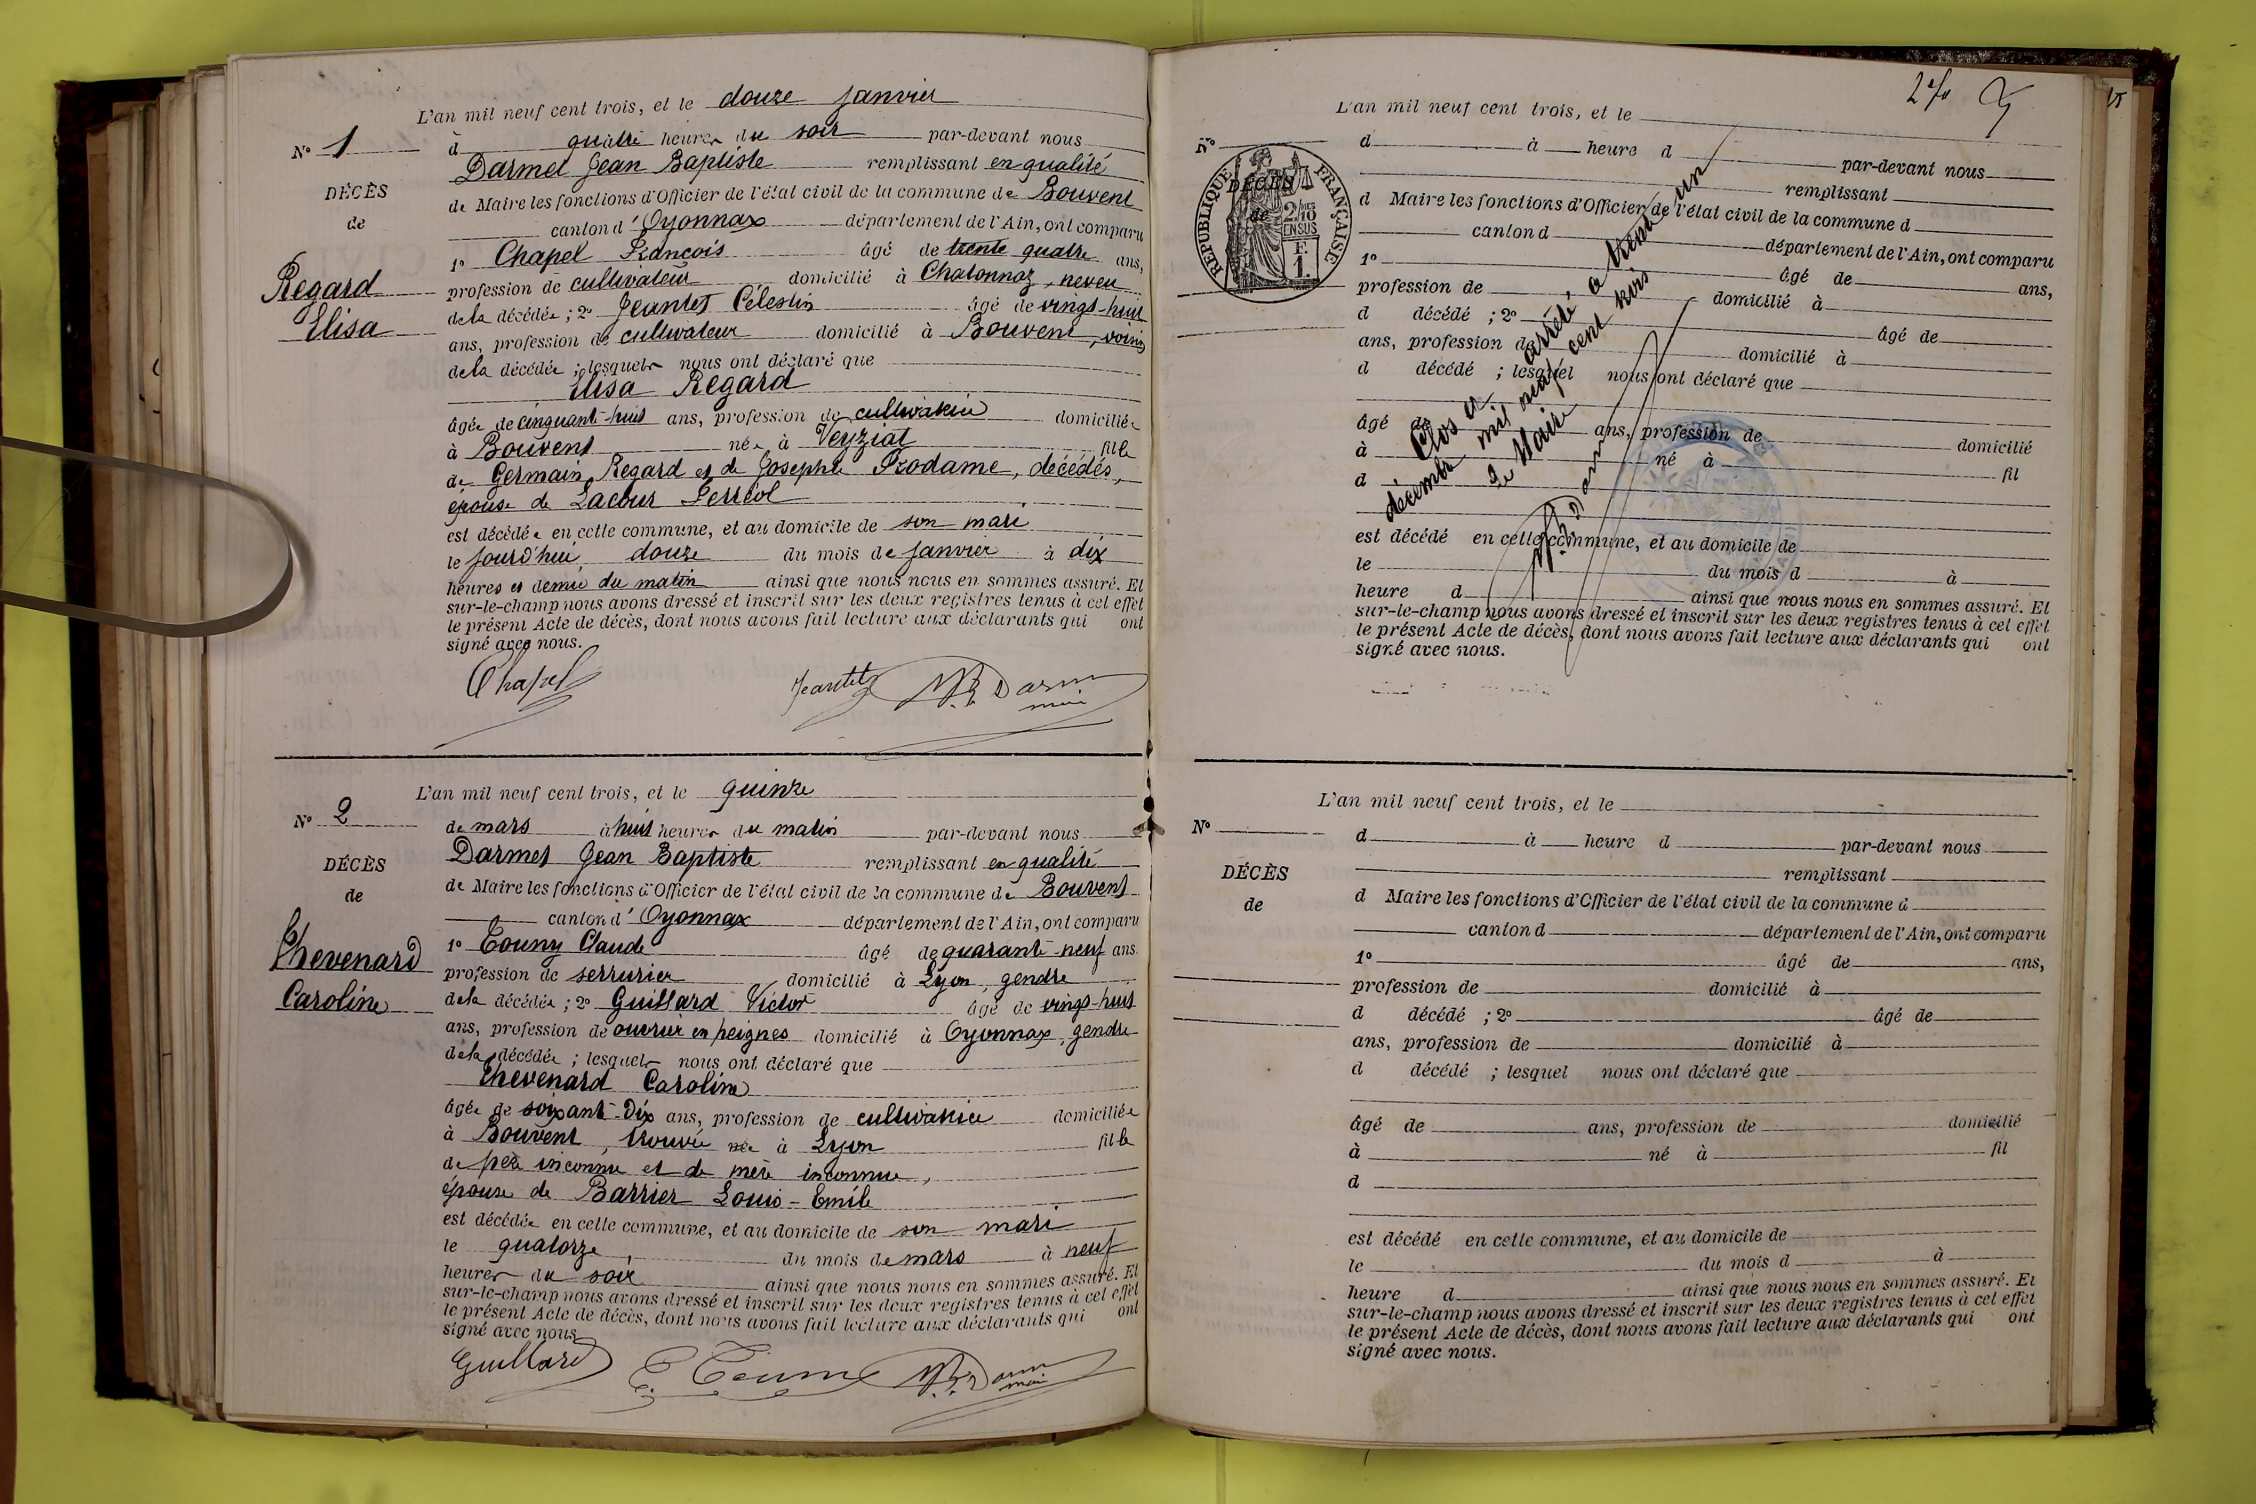 L'an mil neuf cent trois, et le douze janvier
N° 1
à quatre heures du soir par-devant nous
Darmet Jean Baptiste remplissant en qualité
DÉCÈS
de Maire les fonctions d'Officier de l'état civil de la commune de Bouvent
de
canton d'Oyonnax département de l'Ain, ont comparu
1° Chapel François âgé de trente quatre ans,
Regard
profession de cultivateur domicilié à Chatonnaz, neveu
Elisa
de la décédée ; 2° Jeantet Célestin âgé de vingt-huit
ans, profession de cultivateur domicilié à Bouvent, voisin
de la décédée ; lesquels nous ont déclaré que
Elisa Regard
âgée de cinquante-huit ans, profession de cultivatrice domiciliée
à Bouvent née à Veyziat fille
de Germain Regard et de Josephte Prodame, décédés,
épouse de Lacour Ferréol
est décédée en cette commune, et au domicile de son mari
le jourd'hui douze du mois de janvier à dix
heures et demie du matin ainsi que nous nous en sommes assuré. Et
sur-le-champ nous avons dressé et inscrit sur les deux registres tenus à cet effet
le présent Acte de décès, dont nous avons fait lecture aux déclarants qui ont
signé avec nous.
Chapel Jeantet
L'an mil neuf cent trois, et le quinze
N° 2
de mars à huit heures du matin par-devant nous
Darmet Jean Baptiste remplissant en qualité
DÉCÈS
de Maire les fonctions d'Officier de l'état civil de la commune de Bouvent
de
canton d'Oyonnax département de l'Ain, ont comparu
1° Touny Claude âgé de quarante-neuf ans
Thevenard
profession de serrurier domicilié à Lyon, gendre
Caroline
de la décédée ; 2° Guillard Victor âgé de vingt-huit
ans, profession de ouvrier en peignes domicilié à Oyonnax, gendre
de la décédée ; lesquels nous ont déclaré que
Thevenard Caroline
âgée de soixante-dix ans, profession de cultivatrice domiciliée
à Bouvent, trouvée née à Lyon fille
de père inconnu et de mère inconnue,
épouse de Barrier Louis-Emile
est décédée en cette commune, et au domicile de son mari
le quatorze, du mois de mars à neuf
heures du soir ainsi que nous nous en sommes assuré. Et
sur-le-champ nous avons dressé et inscrit sur les deux registres tenus à cet effet
le présent Acte de décès, dont nous avons fait lecture aux déclarants qui ont
signé avec nous
Guillard
L'an mil neuf cent trois, et le
N°
d à heure d par-devant nous
remplissant
DÉCÈS
de
RÉPUBLIQUE FRANÇAISE
2/10 EN SUS
F.
1.
d Maire les fonctions d'Officier de l'état civil de la commune d
canton d département de l'Ain, ont comparu
1° âgé de ans,
profession de domicilié à
d décédé ; 2° âgé de
ans, profession de domicilié à
d décédé ; lesquel nous ont déclaré que
âgé de ans, profession de domicilié
à né à fil
d
est décédé en cette commune, et au domicile de
le du mois d à
heure d ainsi que nous nous en sommes assuré. Et
sur-le-champ nous avons dressé et inscrit sur les deux registres tenus à cet effet
le présent Acte de décès, dont nous avons fait lecture aux déclarants qui ont
signé avec nous.
Clos et arrêté à trente un
décembre mil neuf cent trois
Le Maire
L'an mil neuf cent trois, et le
N°
d à heure d par-devant nous
DÉCÈS
remplissant
de
d Maire les fonctions d'Officier de l'état civil de la commune d
canton d département de l'Ain, ont comparu
1° âgé de ans,
profession de domicilié à
d décédé ; 2° âgé de
ans, profession de domicilié à
d décédé ; lesquel nous ont déclaré que
âgé de ans, profession de domicilié
à né à fil
d
est décédé en cette commune, et au domicile de
le du mois d à
heure d ainsi que nous nous en sommes assuré. Et
sur-le-champ nous avons dressé et inscrit sur les deux registres tenus à cet effet
le présent Acte de décès, dont nous avons fait lecture aux déclarants qui ont
signé avec nous.